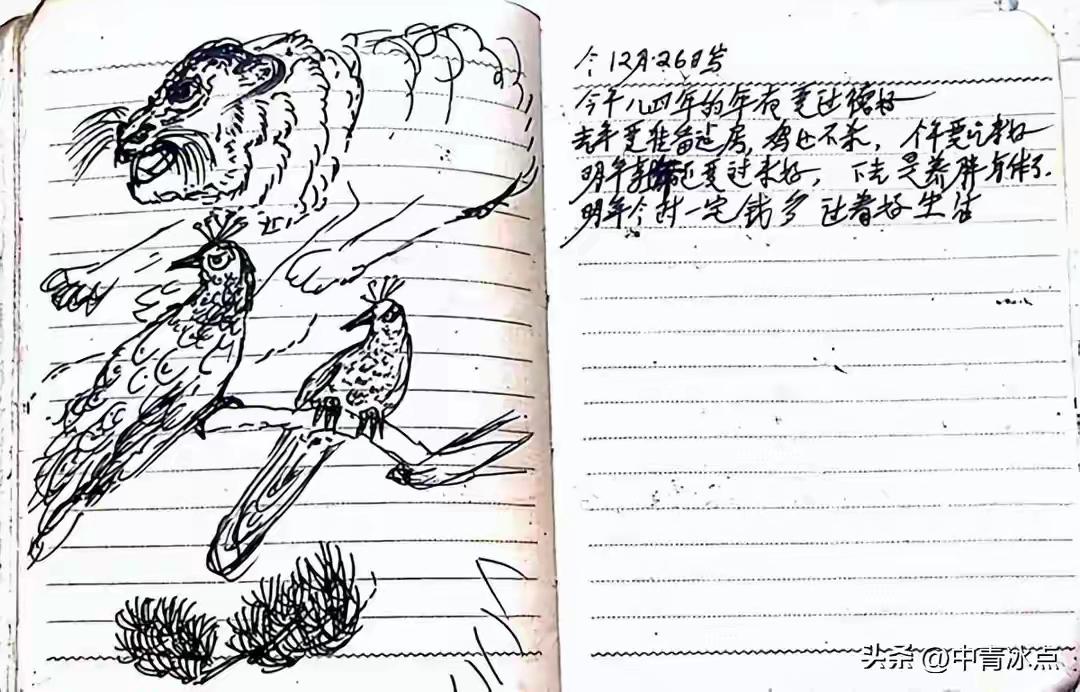 今12月·26日岁
今年八四年的年夜要过很好
去年要准备过房,将也不来,个年要过来好
明年还要过来好,下去是养胖身体了.
明年个时一定钱多过着好生活
头条 @中青冰点